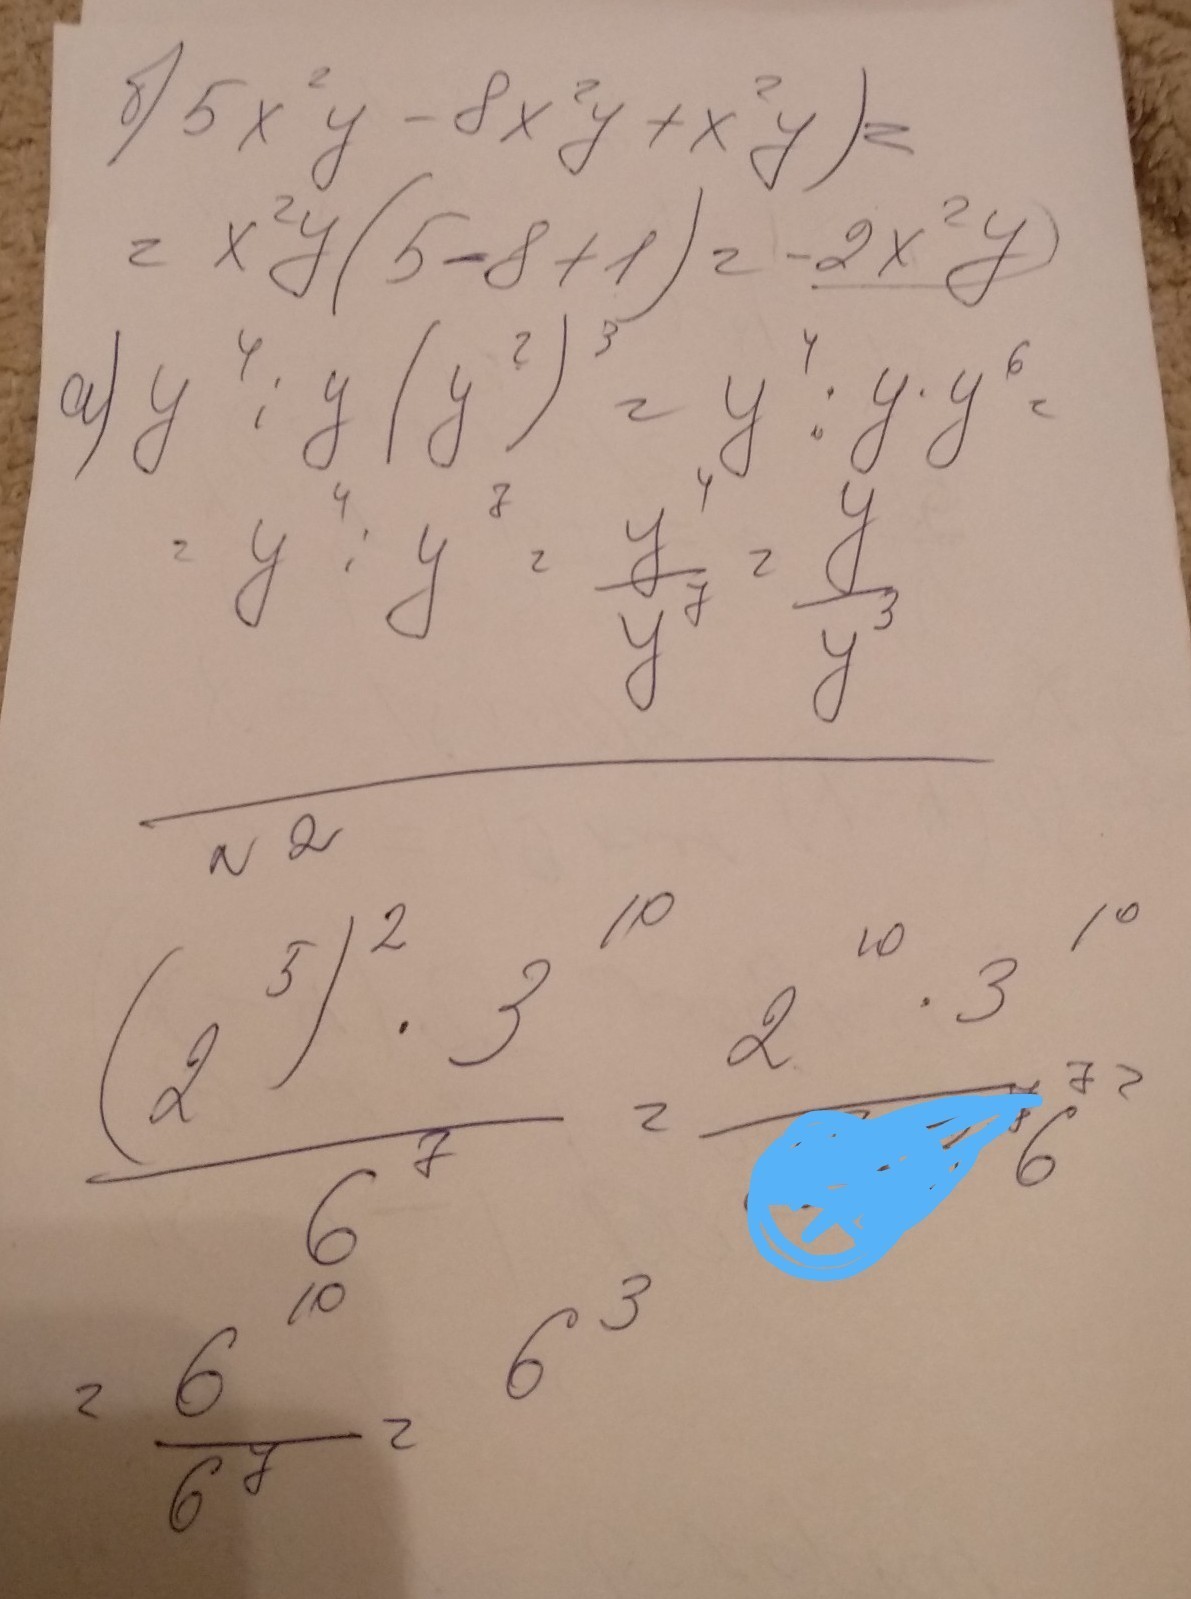 б) 5x²y - 8x²y + x²y) =
= x²y(5-8+1) = -2x²y)
а) y⁴ : y(y²)³ = y⁴ : y · y⁶ =
= y⁴ : y⁷ = y⁴/y⁷ = y/y³
N 2
(2⁵)² · 3¹⁰ / 6⁷ = 2¹⁰ · 3¹⁰ / 6⁷ =
= 6¹⁰/6⁷ = 6³